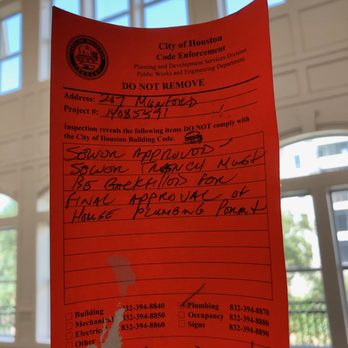 City of Houston
Code Enforcement
Planning and Development Services Division
Public Works and Engineering Department
DO NOT REMOVE
Address: 207 MUNFORD
Project #: 14085591
Inspection reveals the following items DO NOT comply with
the City of Houston Building Code.
SEWER APPROVED
SEWER TRENCH MUST
BE BACKFILLED FOR
FINAL APPROVAL OF
HOUSE PLUMBING PERMIT
Building 832-394-8840
Plumbing 832-394-8870
Mechanical 832-394-8850
Occupancy 832-394-8880
Electrical 832-394-8860
Signs 832-394-8890
Other